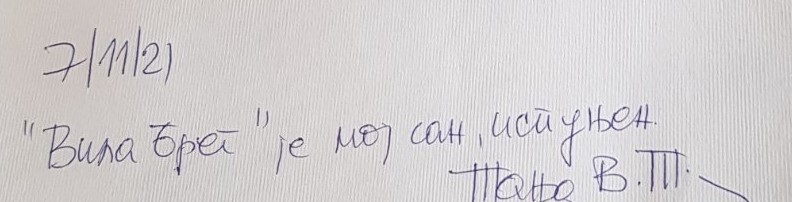 7/11/21
"Вила Брег" је мој сан, испуњен.
Тања В.Т.